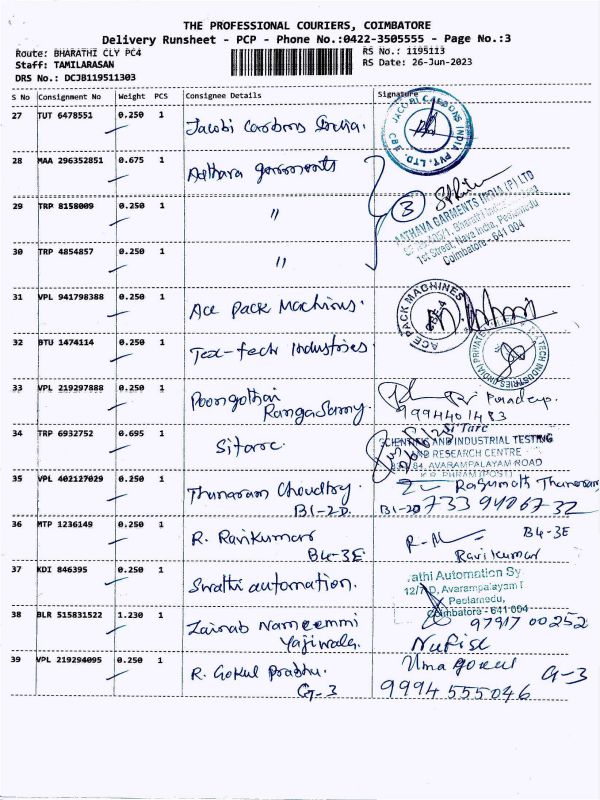 THE PROFESSIONAL COURIERS, COIMBATORE
Delivery Runsheet - PCP - Phone No.:0422-3505555 - Page No.:3
Route: BHARATHI CLY PC4
RS No.: 1195113
Staff: TAMILARASAN
RS Date: 26-Jun-2023
DRS No.: DCJB119511303
S No Consignment No Weight PCS Consignee Details Signature
27 TUT 6478551 0.250 1 Jacobi Carbons India.
JACOBI CARBONS INDIA PVT. LTD.
28 MAA 296352851 0.675 1 Aathava garments
3
AATHAVA GARMENTS INDIA (P) LTD
1st Street, Nava India, Peelamedu
Coimbatore - 641 004
29 TRP 8158009 0.250 1 "
30 TRP 4854857 0.250 1 "
31 VPL 941798388 0.250 1 Ace pack Machines.
ACE PACK MACHINES
32 BTU 1474114 0.250 1 Tex-tech Industries.
TECH INDUSTRIES (INDIA) PRIVATE
33 VPL 219297888 0.250 1 Poongothai
RangaSamy.
9994401483
34 TRP 6932752 0.695 1 Sitarc.
SiTarc
SCIENTIFIC AND INDUSTRIAL TESTING
AND RESEARCH CENTRE
83/84, AVARAMPALAYAM ROAD
K.R. PURAM (POST)
35 VPL 402127029 0.250 1 Thanaram Choudhry.
B1-2D.
B1-2D 7339486732
36 MTP 1236149 0.250 1 R. Ravikumar
B4-3E
B4-3E
Ravikumar
37 KDI 846395 0.250 1 Swathi automation.
athi Automation Sy
12/7D, Avarampalayam
Peelamedu,
Coimbatore - 641 004
38 BLR 515831522 1.230 1 Zainab Nameemmi
Yajiwala.
97917 00252
Nafisa
39 VPL 219294095 0.250 1 R. Gokul Prabhu.
G-3
Uma gokul G-3
9994555046